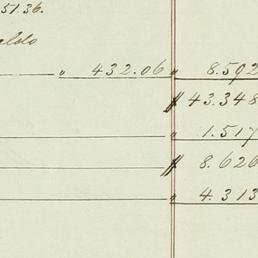 5136.
" 432.06 " 8.592
$ 43.348
" 1.517
$ 8.626
" 4.313